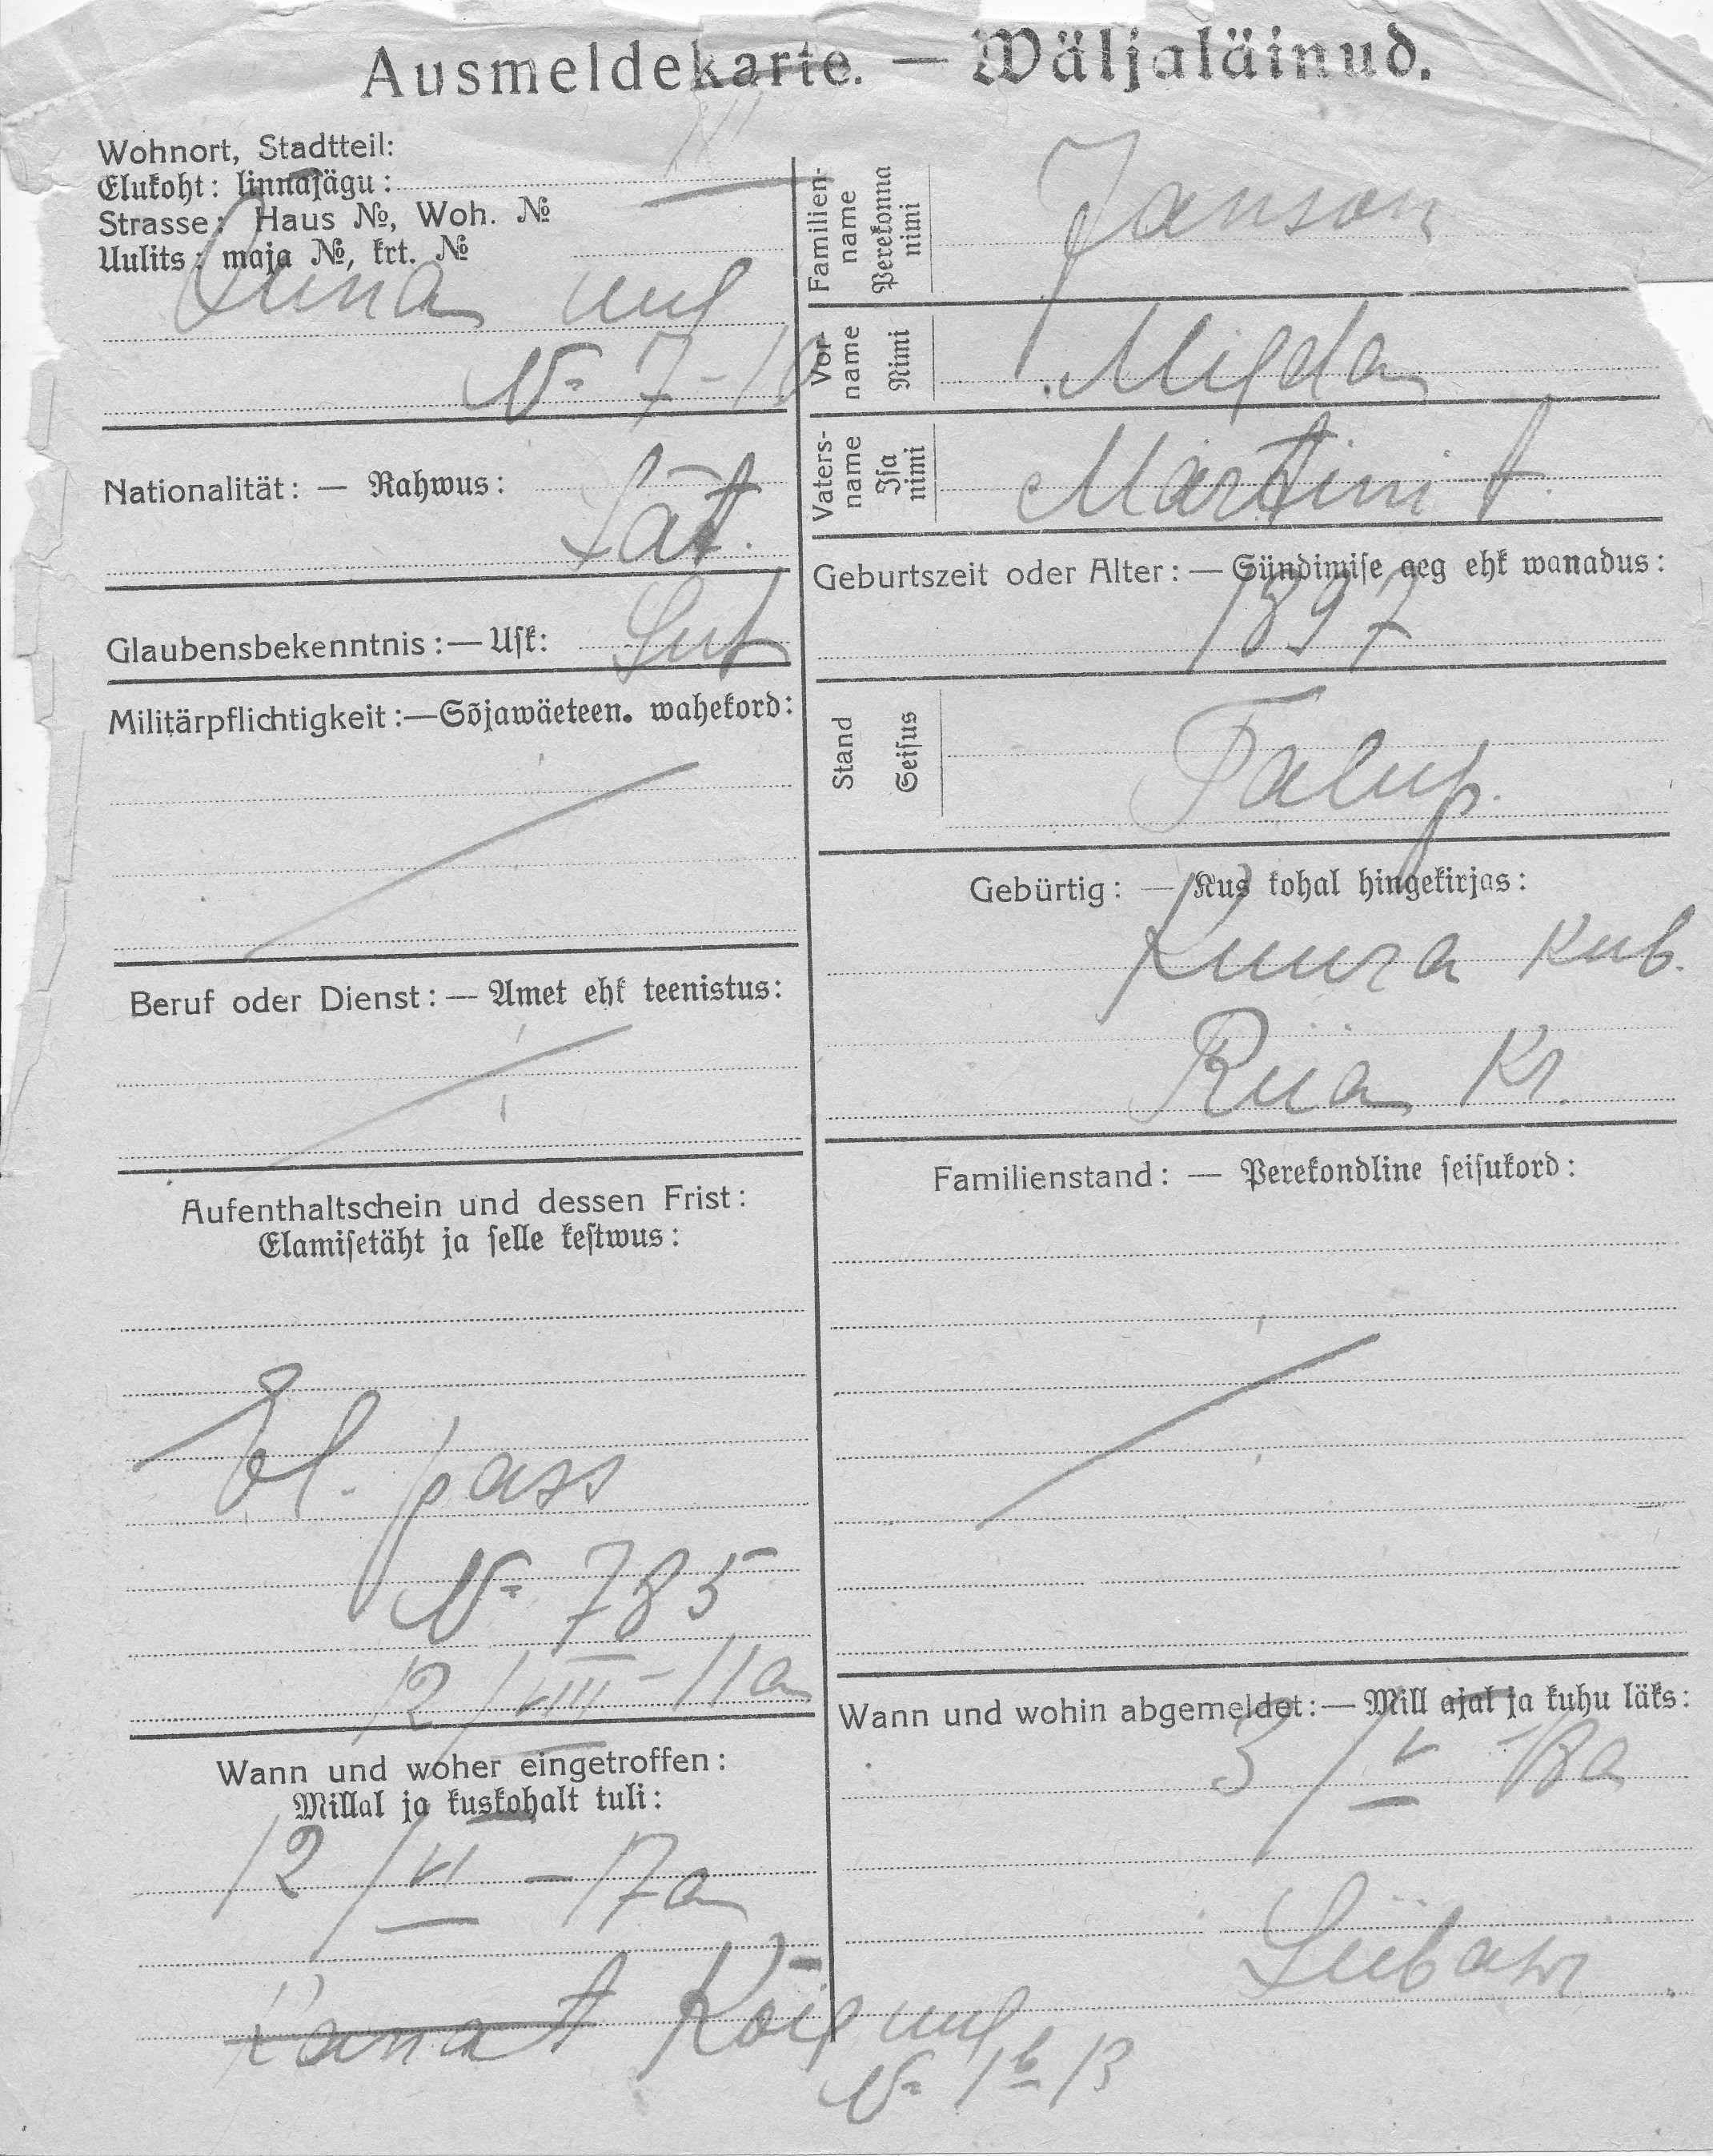 Ausmeldekarte. — Wäljaläinud.
Wohnort, Stadtteil:
Elukoht: linnajägu:
Strasse: Haus №, Woh. №
Uulits: maja №, krt. №
Luna uul
№ 7-10
Nationalität: — Rahwus:
Lät.
Glaubensbekenntnis: — Usk:
Lut
Militärpflichtigkeit: — Sõjawäeteen. wahekord:
Beruf oder Dienst: — Amet ehk teenistus:
Aufenthaltschein und dessen Frist:
Elamisetäht ja selle kestwus:
El. pass
№ 785
12/VIII - 11a
Wann und woher eingetroffen:
Millal ja kuskohalt tuli:
12/VI - 17a
Familienname Perekonna nimi
Janson
Vorname Nimi
Milda
Vatersname Isa nimi
Martini t.
Geburtszeit oder Alter: — Sündimise aeg ehk wanadus:
1897
Stand Seisus
Talup.
Gebürtig: — Kus kohal hingekirjas:
Kuura kub.
Riia kr.
Familienstand: — Perekondline seisukord:
Wann und wohin abgemeldet: — Mill ajal ja kuhu läks:
3/V 18a
uul
№ 1b 13